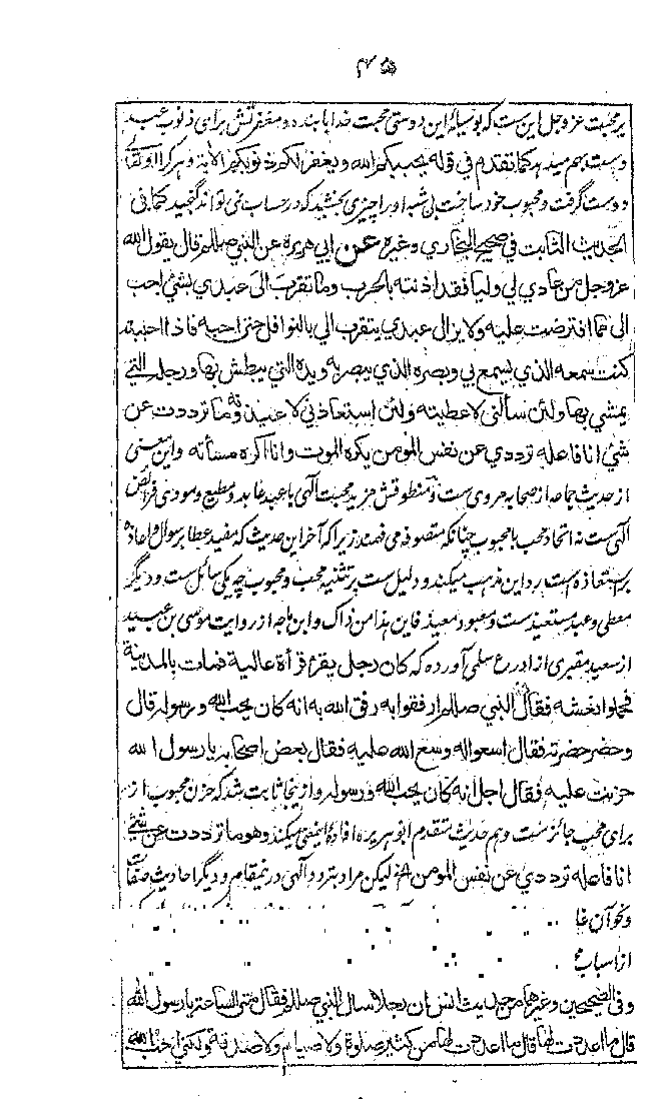 ۴۵
بر محبت عز وجل این ست که بوسیلهٔ این دوستی محبت خدا با بنده و مغفرتش برای ذنوب عبد
دست بهم میدهد کما تقدم فی قوله یحببکم الله ویغفر لکم ذنوبکم الآیة و هر کرا او تعالی
دوست گرفت و محبوب خود ساخت بی شبه او را چیزی بخشید که در حساب نمی تواند گنجید کما فی
الحدیث الثابت فی صحیح البخاري وغیره عن ابي هریرة عن النبي صللم قال یقول الله
عز وجل من عادي لي ولیا فقد اذنته بالحرب وما تقرب الی عبدي بشئ احب
الی مما افترضت علیه ولا یزال عبدي یتقرب الي بالنوافل حتی احبه فاذا احببته
کنت سمعه الذي یسمع بي وبصره الذي یبصر به ویده التي یبطش بها ورجله التي
یمشي بها ولئن سألني لاعطیته ولئن استعاذني لاعیذنه وما ترددت عن
شئ انا فاعله ترددي عن نفس المومن یکره الموت وانا اکره مسأته و این معنی
از حدیث جماعه از صحابه مروی ست و منطوقش مزید محبت آلهی با عبد عابد و مطیع و مودی فرائض
آلهی ست نه اتحاد محب با محبوب چنانکه متصوفه می فهمند زیرا که آخر این حدیث که مفید عطا بر سوال و اعاذه
بر استعاذه هست رد این مذهب میکند و دلیل ست بر تثنیه محب و محبوب چه یکی سائل ست و دیگر
معطی و عبد مستعیذ ست و معبود معیذ فاین هذا من ذاک و ابن ماجه از روایت موسی بن عبید
از سعید مقبری از ادرع سلمی آورده که کان رجل یقرء قرأة عالیة فمات بالمدینة
فحملوا نعشه فقال النبي صللم ارفقوا به رفق الله به انه کان یحب الله ورسوله قال
وحضر حضرته فقال اسعوا له وسع الله علیه فقال بعض اصحابه یا رسول الله
حزنت علیه فقال اجل انه کان یحب الله ورسوله و ازینجا ثابت شد که حزن محبوب از
برای محب جائز ست و هم حدیث متقدم ابو هریره افادهٔ اینمعنی میکند وهو ما ترددت عن شئ
انا فاعله ترددي عن نفس المومن الخ لیکن مراد بتردد آلهی درینمقام و دیگر احادیث صفات
و نحو آن غا
از اسباب
وفی الصحیحین وغیرهما من حدیث انس ان رجلا سال النبي صللم فقال متی الساعة یا رسول الله
قال ما اعددت لها قال ما اعددت لها من کثیر صلوة ولا صیام ولا صدقة ولکني احب الله